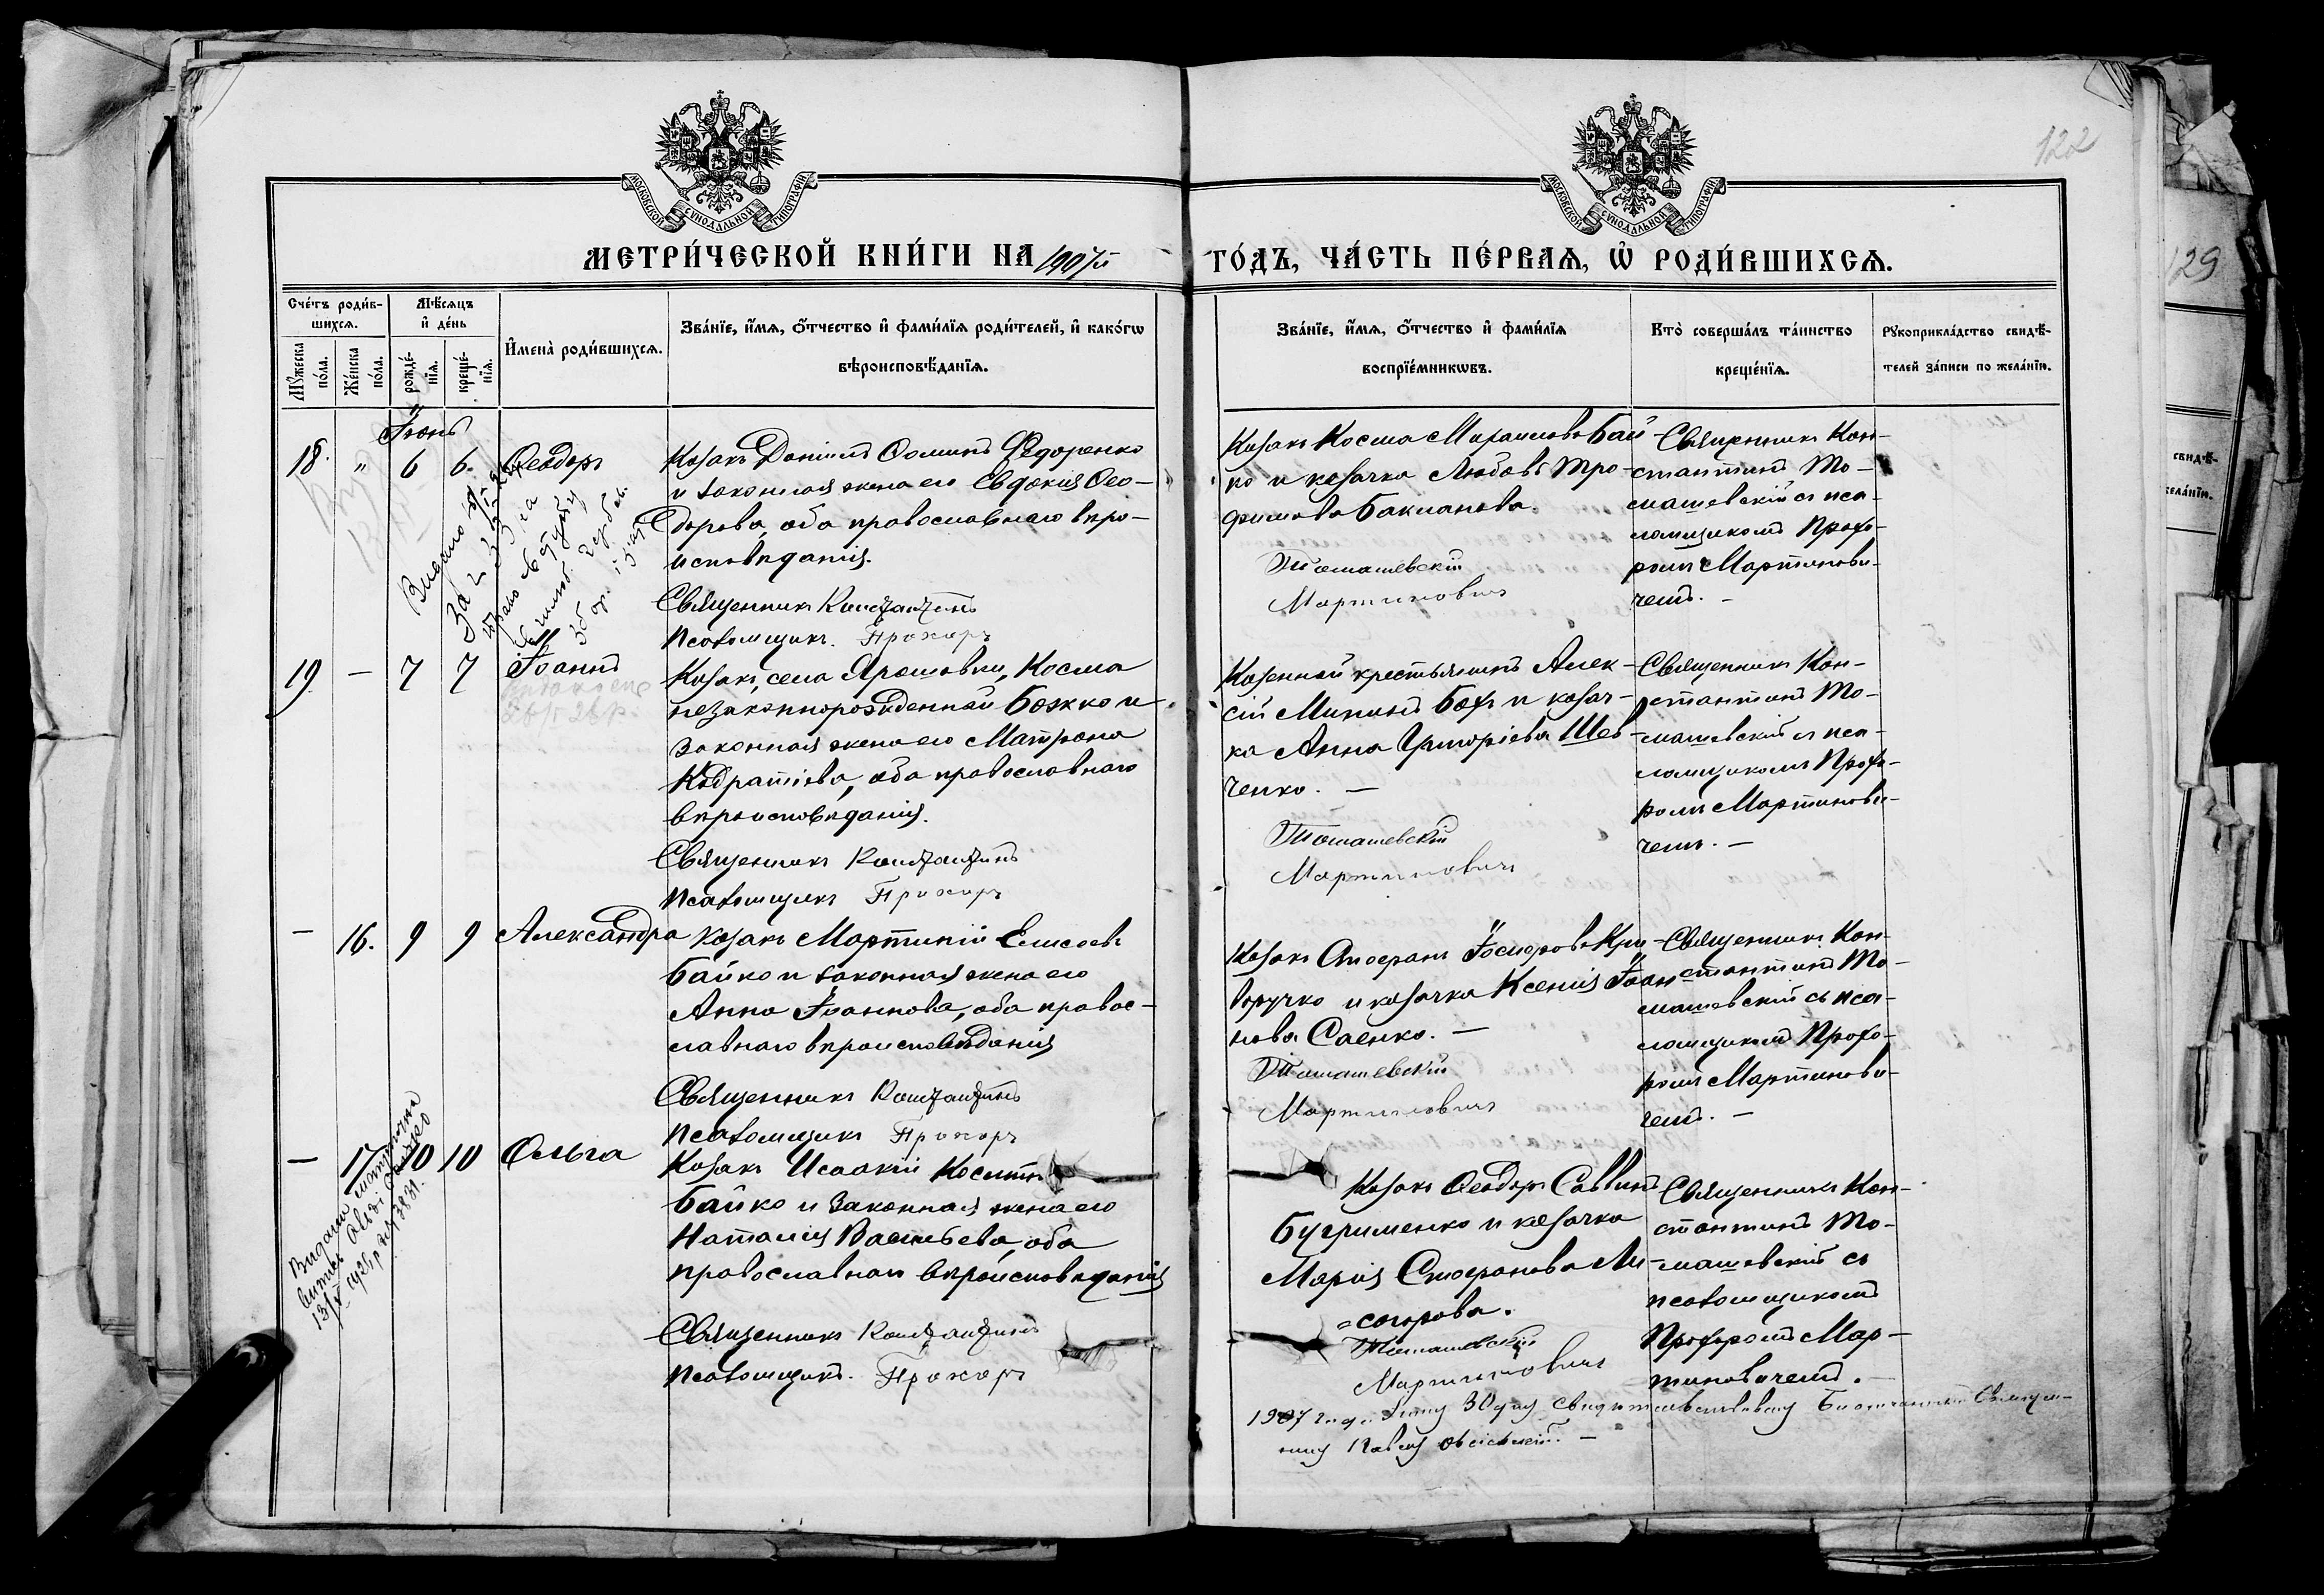 122
МОСКОВСКОЙ СѴНОДАЛЬНОЙ ТИПОГРАФІИ
МОСКОВСКОЙ СѴНОДАЛЬНОЙ ТИПОГРАФІИ
МЕТРИ́ЧЕСКОЙ КНИ́ГИ НА 1907й
ГО́ДЪ, ЧА́СТЬ ПЕ́РВАѦ, Ѡ҆ РОДИ́ВШИХСѦ.
Сче́тъ роди́в-
шихсѧ.
Мѣ́сѧцъ
и҆ де́нь
Мꙋ́жеска
по́ла.
Же́нска
по́ла.
рожде́-
нїѧ.
креще́-
нїѧ.
И҆мена̀ роди́вшихсѧ.
Зва́нїе, и҆́мѧ, ѻ҆́тчество и҆ фами́лїѧ роди́телей, и҆ како́гѡ
вѣроисповѣ́данїѧ.
Зва́нїе, и҆́мѧ, ѻ҆́тчество и҆ фами́лїѧ
воспрїе́мникѡвъ.
Кто̀ соверша́лъ та́инство
креще́нїѧ.
Рꙋкоприкла́дство свидѣ́-
телей за́писи по жела́нїю.
Іюнь
18. " 6 6. Ѳеодоръ
Козакъ Даніилъ Ѳоминъ Ѳедоренко
и законная жена его Евдокія Ѳео-
дорова, оба православнаго вѣро-
исповѣданія.
Священникъ Константинъ
Псаломщикъ. Прохоръ
Козакъ Косма Бай-
ко и козачка Любовь Тро-
фимова Бакланова.
Томашевскій
Мартиновичъ
Священникъ Кон-
стантинъ То-
машевскій съ пса-
ломщикомъ Прохо-
ромъ Мартинови-
чемъ. -
19 - 7 7 Іоаннъ
Козакъ, села Ярошовки, Косма
незаконнорожденный Божко и
законная жена его Матрона
Кодратіева, оба православнаго
вѣроисповѣданія.
Священникъ Константинъ
Псаломщикъ Прохоръ
Казенный крестьянинъ Алек-
сій Мининъ Бохъ и козач-
ка Анна Григоріева Шев-
ченко. -
Томашевскій
Мартиновичъ
Священникъ Кон-
стантинъ То-
машевскій съ пса-
ломщикомъ Прохо-
ромъ Мартинови-
чемъ. -
- 16. 9 9 Александра
Козакъ Мартиній Елисеевъ
Байко и законная жена его
Анна Іоаннова, оба правос-
лавнаго вѣроисповѣданія
Священникъ Константинъ
Псаломщикъ Прохоръ
Козакъ Стефанъ Кри-
воручко и козачка Ксенія Іоан-
нова Саенко. -
Томашевскій
Мартиновичъ
Священникъ Кон-
стантинъ То-
машевскій съ пса-
ломщикомъ Прохо-
ромъ Мартинови-
чемъ. -
- 17 10 10 Ольга
Козакъ Исаакій Косминъ
Байко и законная жена его
Наталія Васильева, оба
православнаго вѣроисповѣданія
Священникъ Константинъ
Псаломщикъ. Прохоръ
Козакъ Ѳеодоръ Саввинъ
Бугрименко и козачка
Марія Стефанова Ли-
согорова.
Томашевскій
Мартиновичъ
Священникъ Кон-
стантинъ То-
машевскій съ
псаломщикомъ
Прохоромъ Мар-
тиновичемъ.
1907 года 30 дня
129
свидѣ́-
жела́нїю.